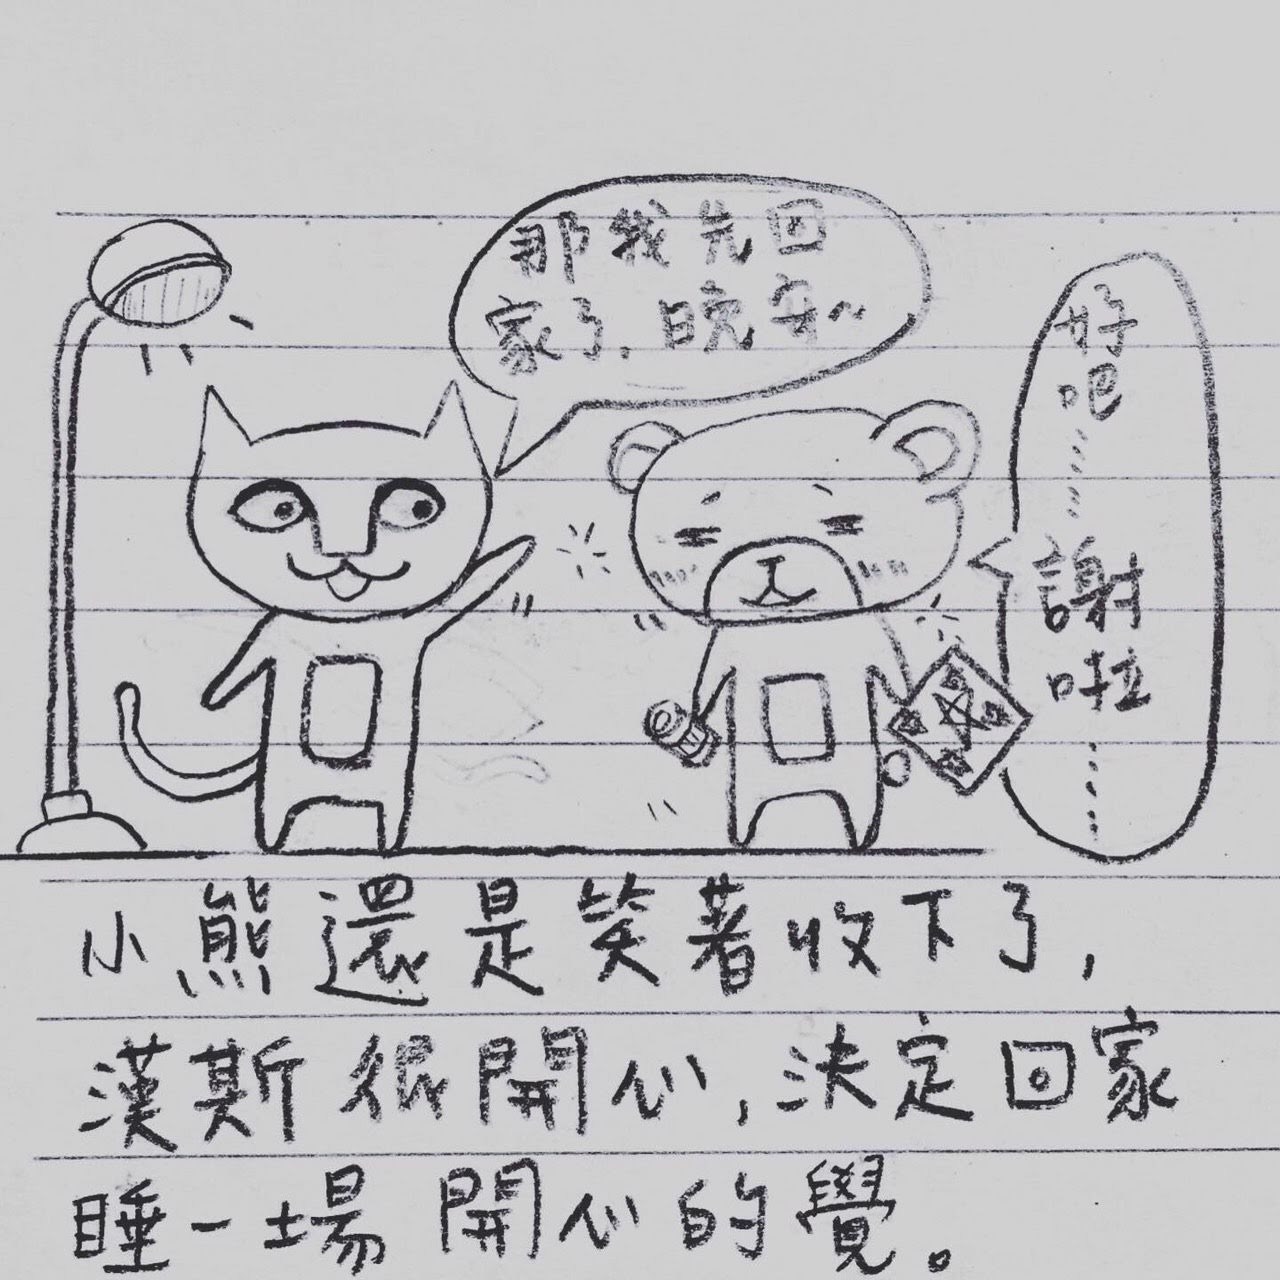 那我先回
家了,晚安~
好吧……
謝啦……
小熊還是笑著收下了,
漢斯很開心,決定回家
睡一場開心的覺。